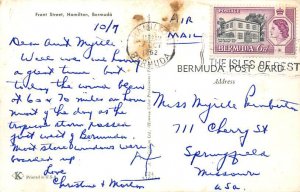 Front Street, Hamilton, Bermuda
10/9
AIR
MAIL
Dear Aunt Myrtle
Well we are having
a great time but
today the winds began
at 60 & 70 miles an hour
most of the day as the
tropical storm passed
just west of Bermuda.
Most store windows were
boarded up.
Love
Christine & Morton
POSTAGE
BERMUDA 6d
THE ISLES OF REST
BERMUDA POST CARD
Address
Miss Myrtle
711 Cherry St
Springfield
Missouri
USA.